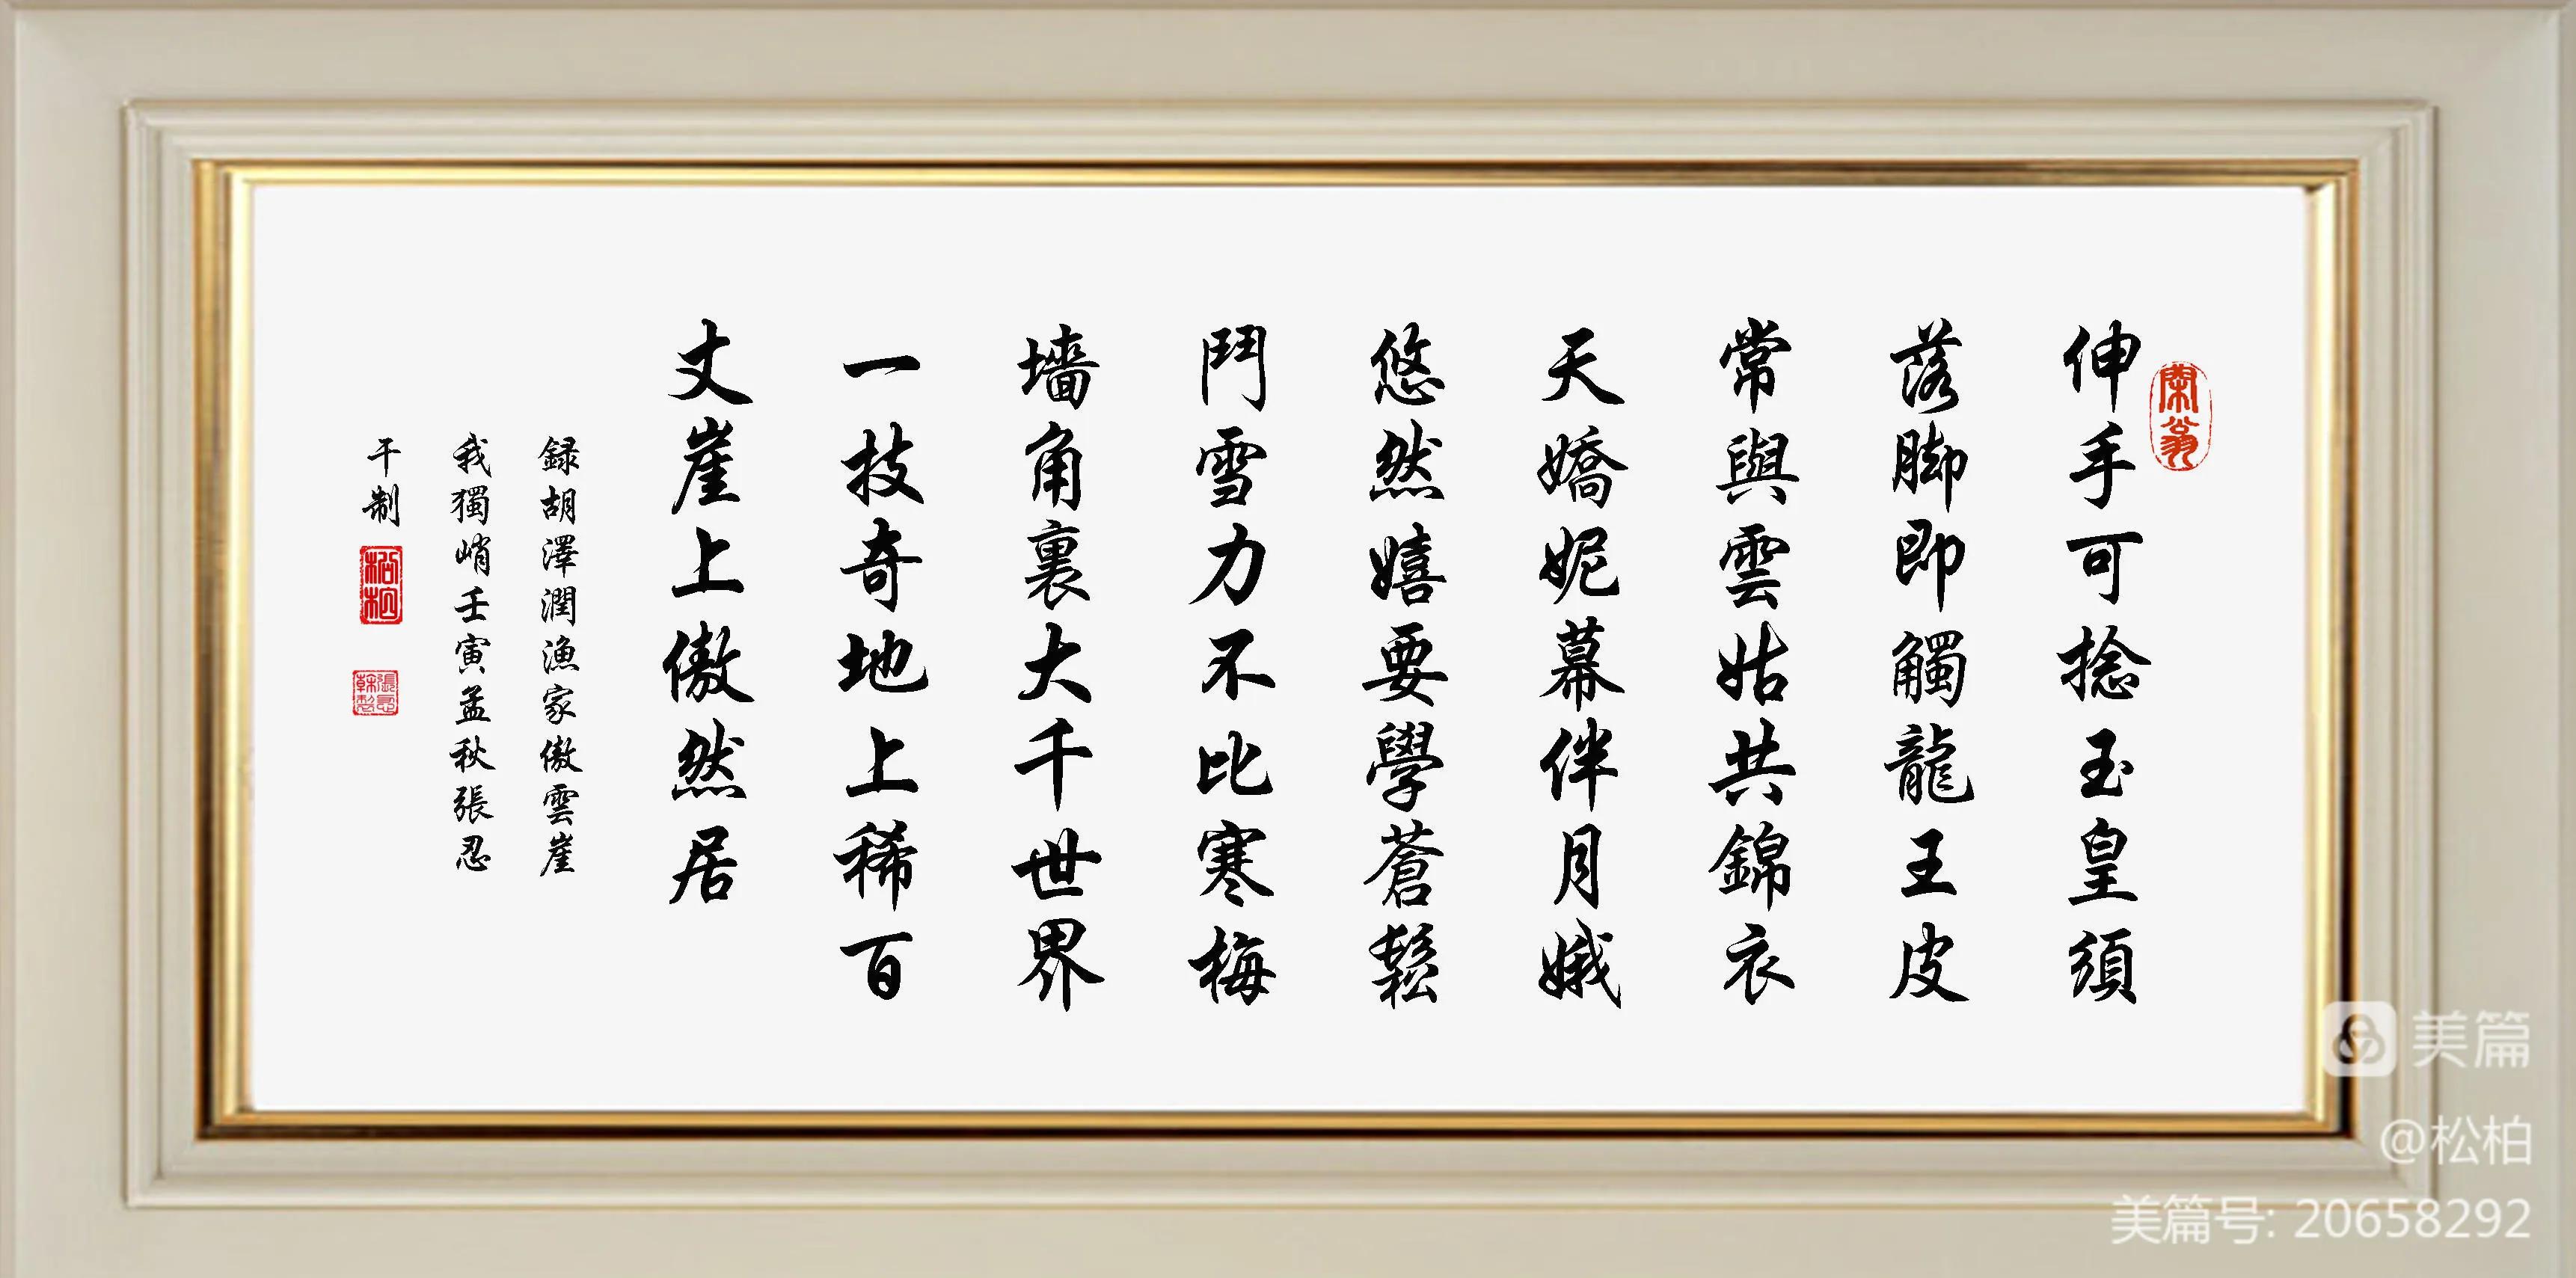 伸手可捻玉皇須
落脚即觸龍王皮
常與雲姑共錦衣
天嬌妮幕伴月娥
悠然嬉要學蒼鬆
鬥雪力不比寒梅
墻角裏大千世界
一技奇地上稀百
丈崖上傲然居
録胡澤潤漁家傲雲崖
我獨峭壬寅孟秋張忍
干制
松柏
美篇
@松柏
美篇号: 20658292